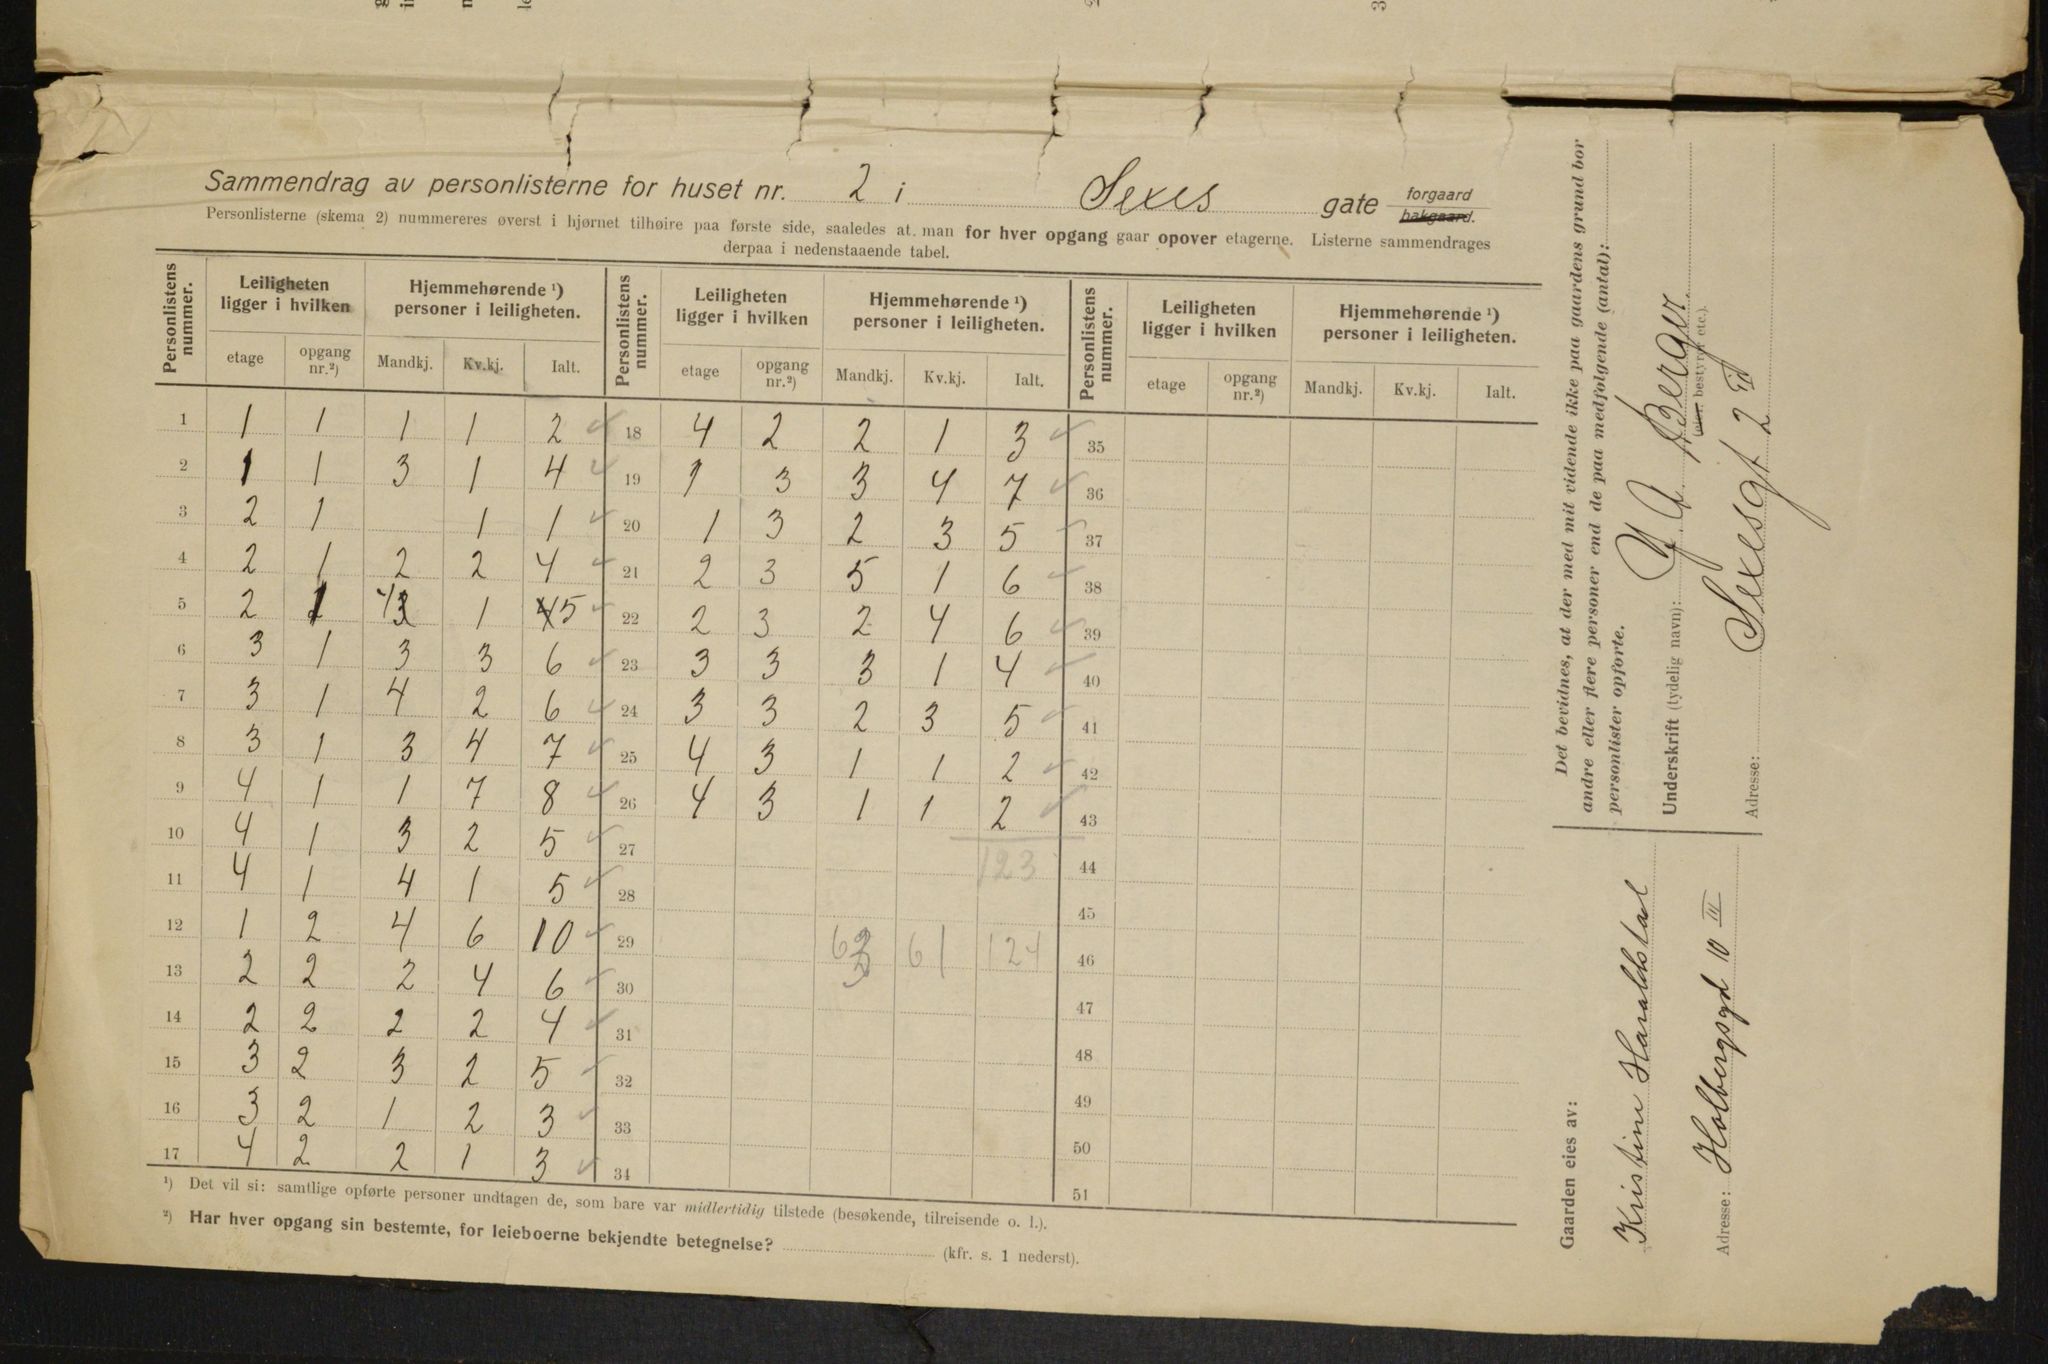 Sammendrag av personlisterne for huset nr. 2 i Sexes gate forgaard bakgaard.
Personlisterne (skema 2) nummereres øverst i hjørnet tilhøire paa første side, saaledes at man for hver opgang gaar opover etagerne. Listerne sammendrages
derpaa i nedenstaaende tabel.
Personlistens nummer. Leiligheten ligger i hvilken Hjemmehørende ¹) personer i leiligheten. Personlistens nummer. Leiligheten ligger i hvilken Hjemmehørende ¹) personer i leiligheten. Personlistens nummer. Leiligheten ligger i hvilken Hjemmehørende ¹) personer i leiligheten.
etage opgang nr.²) Mandkj. Kv.kj. Ialt. etage opgang nr.²) Mandkj. Kv.kj. Ialt. etage opgang nr.²) Mandkj. Kv.kj. Ialt.
1 1 1 1 1 2 ✓ 18 4 2 2 1 3 ✓ 35
2 1 1 3 1 4 ✓ 19 1 3 3 4 7 ✓ 36
3 2 1 1 1 ✓ 20 1 3 2 3 5 ✓ 37
4 2 1 2 2 4 ✓ 21 2 3 5 1 6 ✓ 38
5 2 1 4 3 1 4 5 ✓ 22 2 3 2 4 6 ✓ 39
6 3 1 3 3 6 ✓ 23 3 3 3 1 4 ✓ 40
7 3 1 4 2 6 ✓ 24 3 3 2 3 5 ✓ 41
8 3 1 3 4 7 ✓ 25 4 3 1 1 2 ✓ 42
9 4 1 1 7 8 ✓ 26 4 3 1 1 2 ✓ 43
10 4 1 3 2 5 ✓ 27 123 44
11 4 1 4 1 5 ✓ 28 45
12 1 2 4 6 10 ✓ 29 63 61 124 46
13 2 2 2 4 6 ✓ 30 47
14 2 2 2 2 4 ✓ 31 48
15 3 2 3 2 5 ✓ 32 49
16 3 2 1 2 3 ✓ 33 50
17 4 2 2 1 3 ✓ 34 51
¹) Det vil si: samtlige opførte personer undtagen de, som bare var midlertidig tilstede (besøkende, tilreisende o. l.).
²) Har hver opgang sin bestemte, for leieboerne bekjendte betegnelse? (kfr. s. 1 nederst).
Det bevidnes, at der med mit vidende ikke paa gaardens grund bor
andre eller flere personer end de paa medfølgende (antal):
personlister opførte.
Underskrift (tydelig navn): Berger
(eier, bestyrer etc.).
Adresse: Sexesgt 2
Gaarden eies av:
Kristine Haraldstad
Adresse: Holbergsgd 10 III